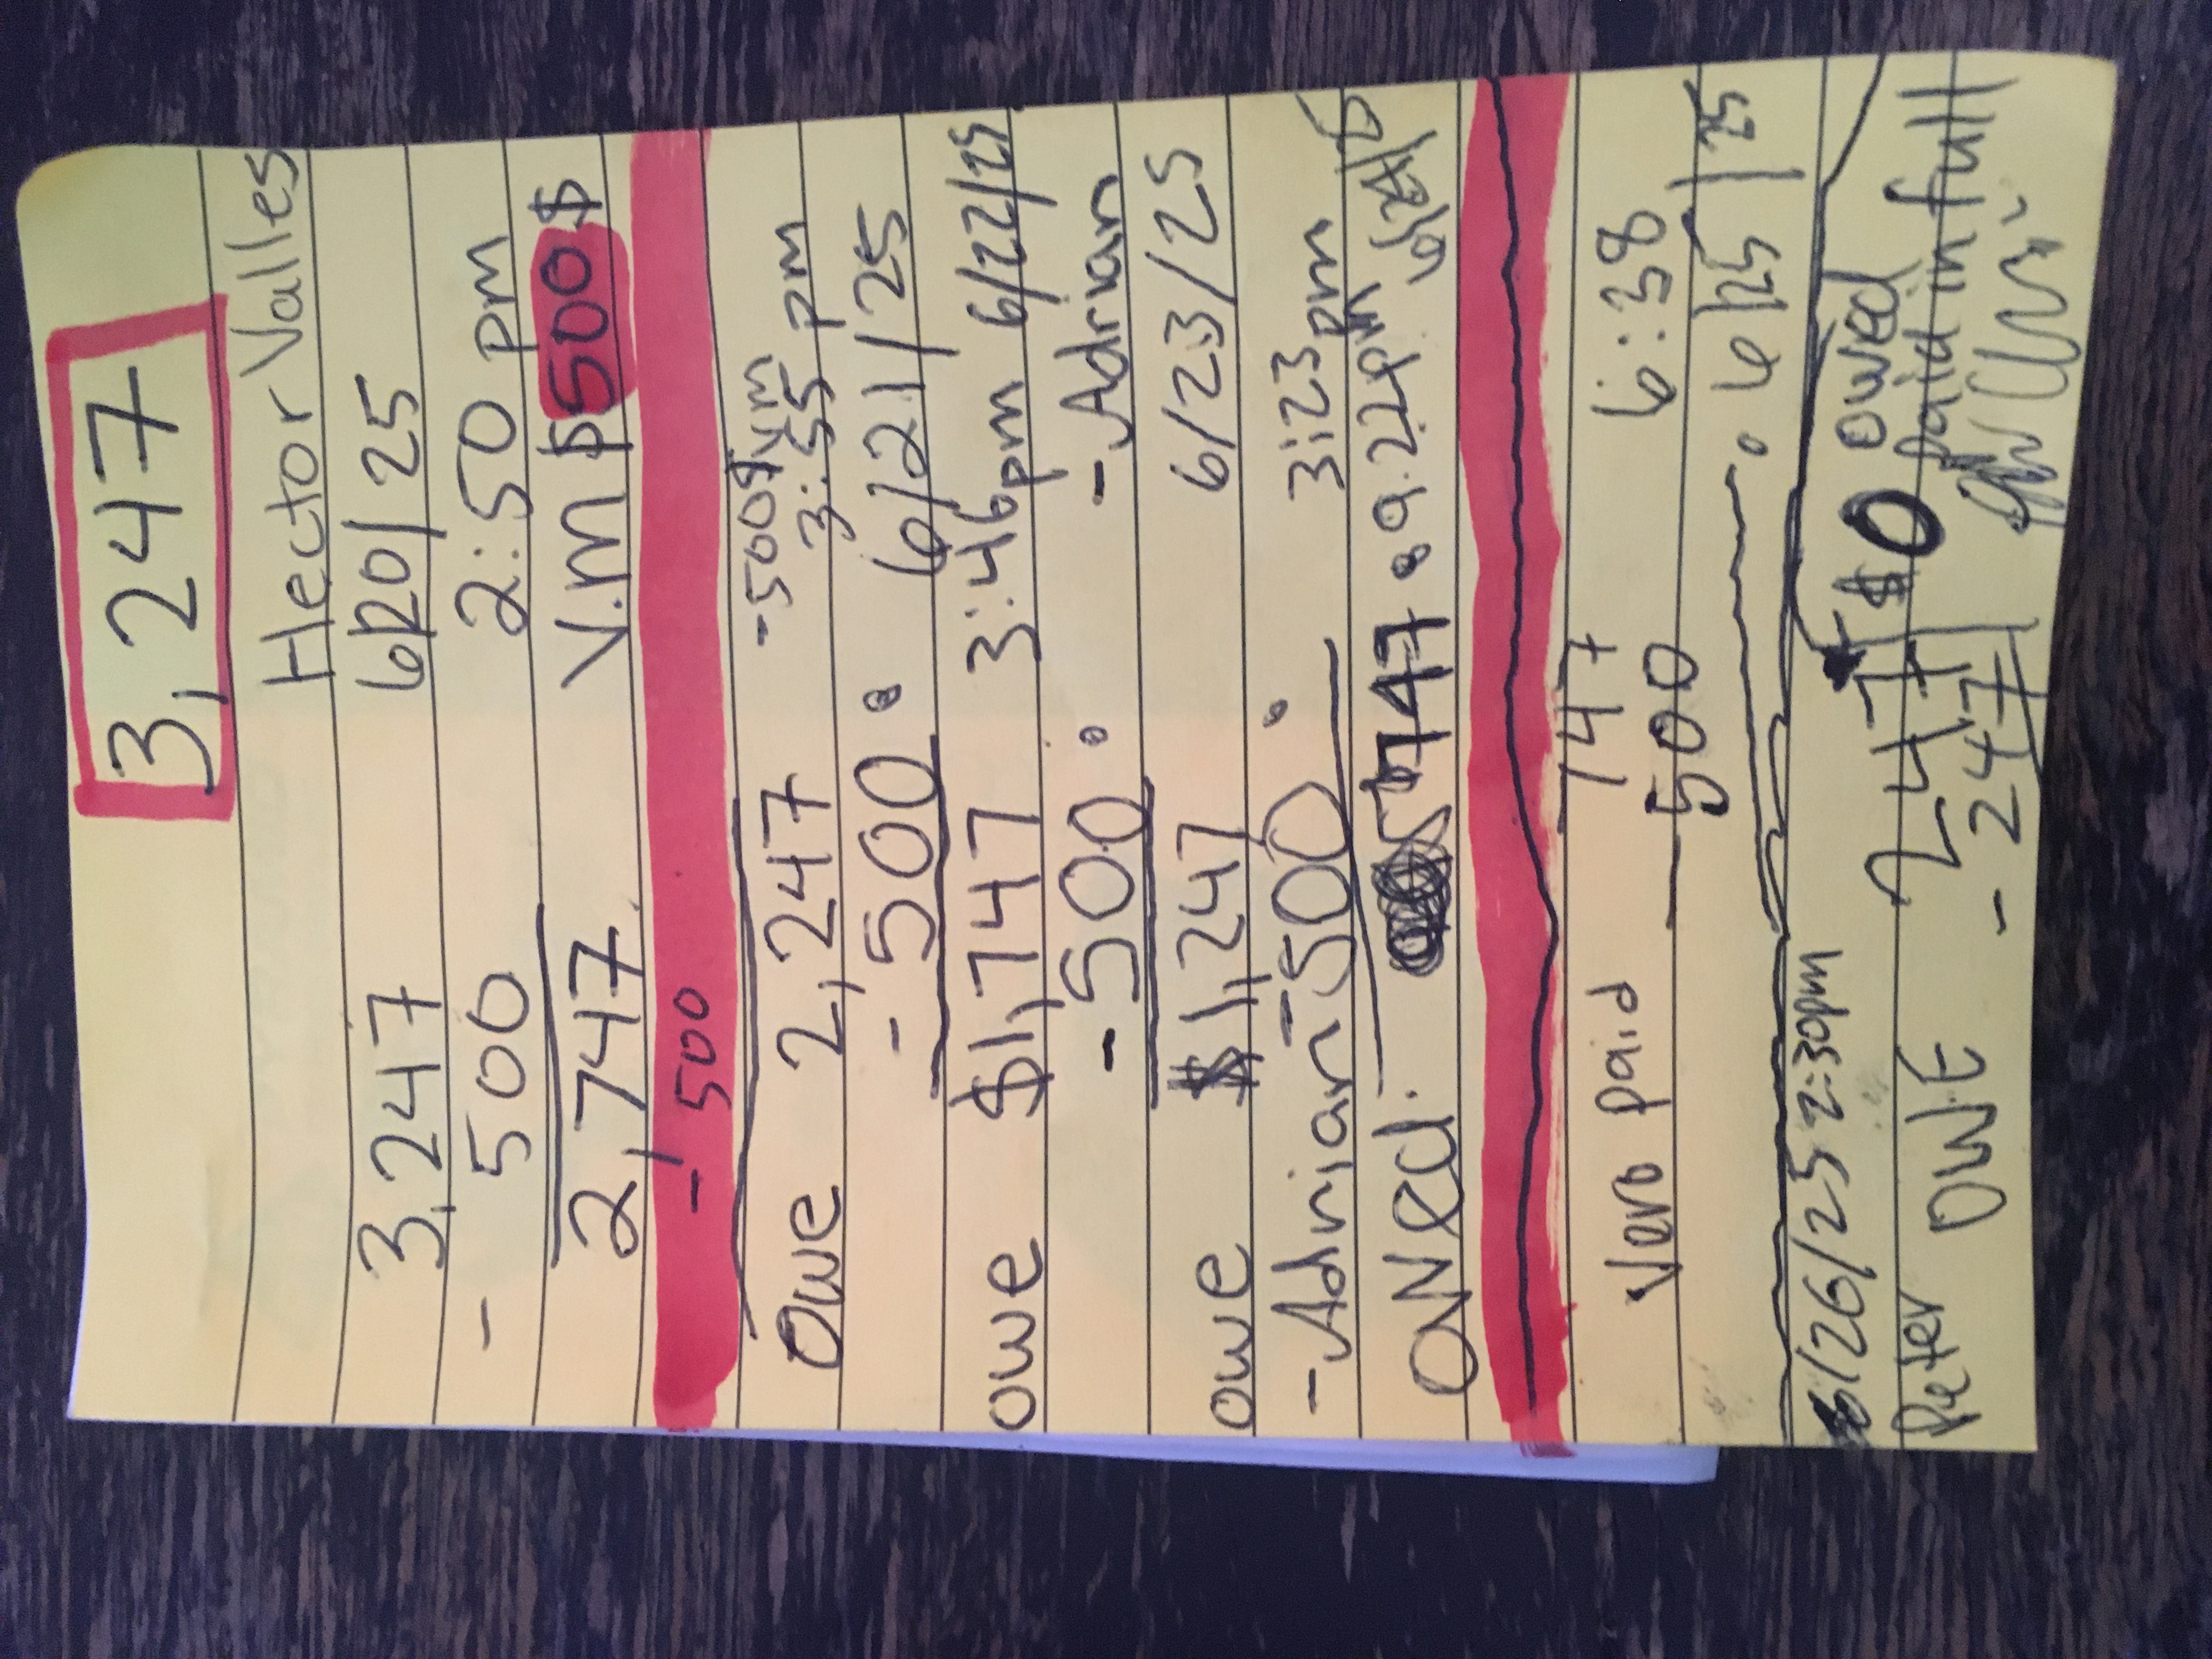 3,247
Hector Valles
3,247 6/20/25
- 500 2:50 pm
2,747 V.M $500$
- 500
-500$ V.m
Owe 2,247 3:55 pm
- 500. 6/21/25
owe $1,747 3:46pm 6/22/25
- 500. - Adrian
owe $1,247 6/23/25
- Adrian - 500. 3:23pm
OWed. 747. 9:22pm 6/24/25
747
Vero paid - 500 6:38
6/25/25
6/26/25 2:30pm
247 $0 owed
Peter OWE - 247 paid in full